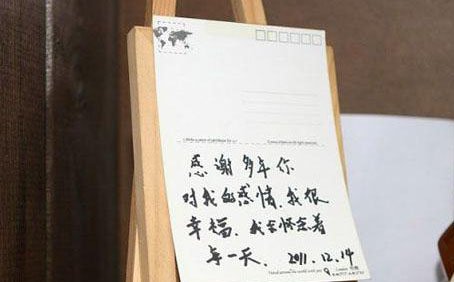 感谢多年你
对我的感情,我很
幸福,我会怀念着
每一天、2011.12.14